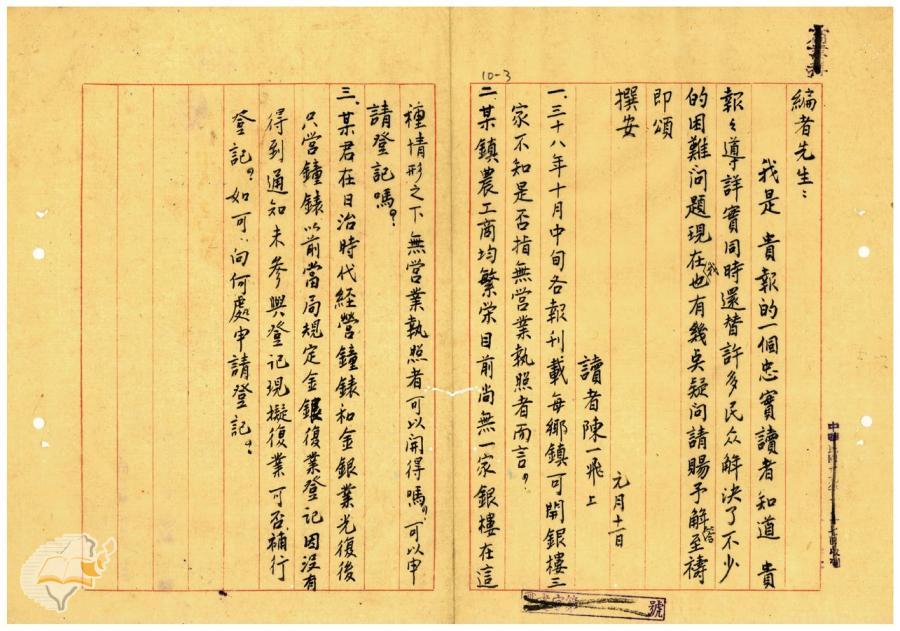 編者先生：
我是　貴報的一個忠實讀者知道　貴
報々導詳實同時還替許多民众解決了不少
的困難问題現在我也有幾吳疑问請賜予解答至禱
即頌
撰安
讀者陳一飛上
元月十二日
一.三十八年十月中旬各報刊載每鄉鎮可開銀樓三
家不知是否指無営業執照者而言？
二.某鎮農工商均繁栄目前尚無一家銀樓在這
10-3
種情形之下無営業執照者可以開得嗎？可以申
請登記嗎？
三.某君在日治時代経營鐘錶和金銀業光復後
只営鐘錶以前當局規定金銀復業登記因沒有
得到通知未参與登记現擬復業可否補行
登記？如可、向何處申請登記？
號